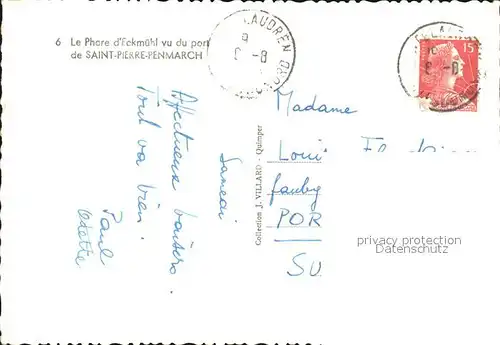 6 Le Phare d'Eckmühl vu du port
de SAINT-PIERRE-PENMARCH
LAUDREN
8
15
Madame
Loui
faubg
POR
SU
Samedi
Affectueux baisers.
Tout va bien.
Paul
Odette
Collection J. VILLARD - Quimper
privacy protection
watermark